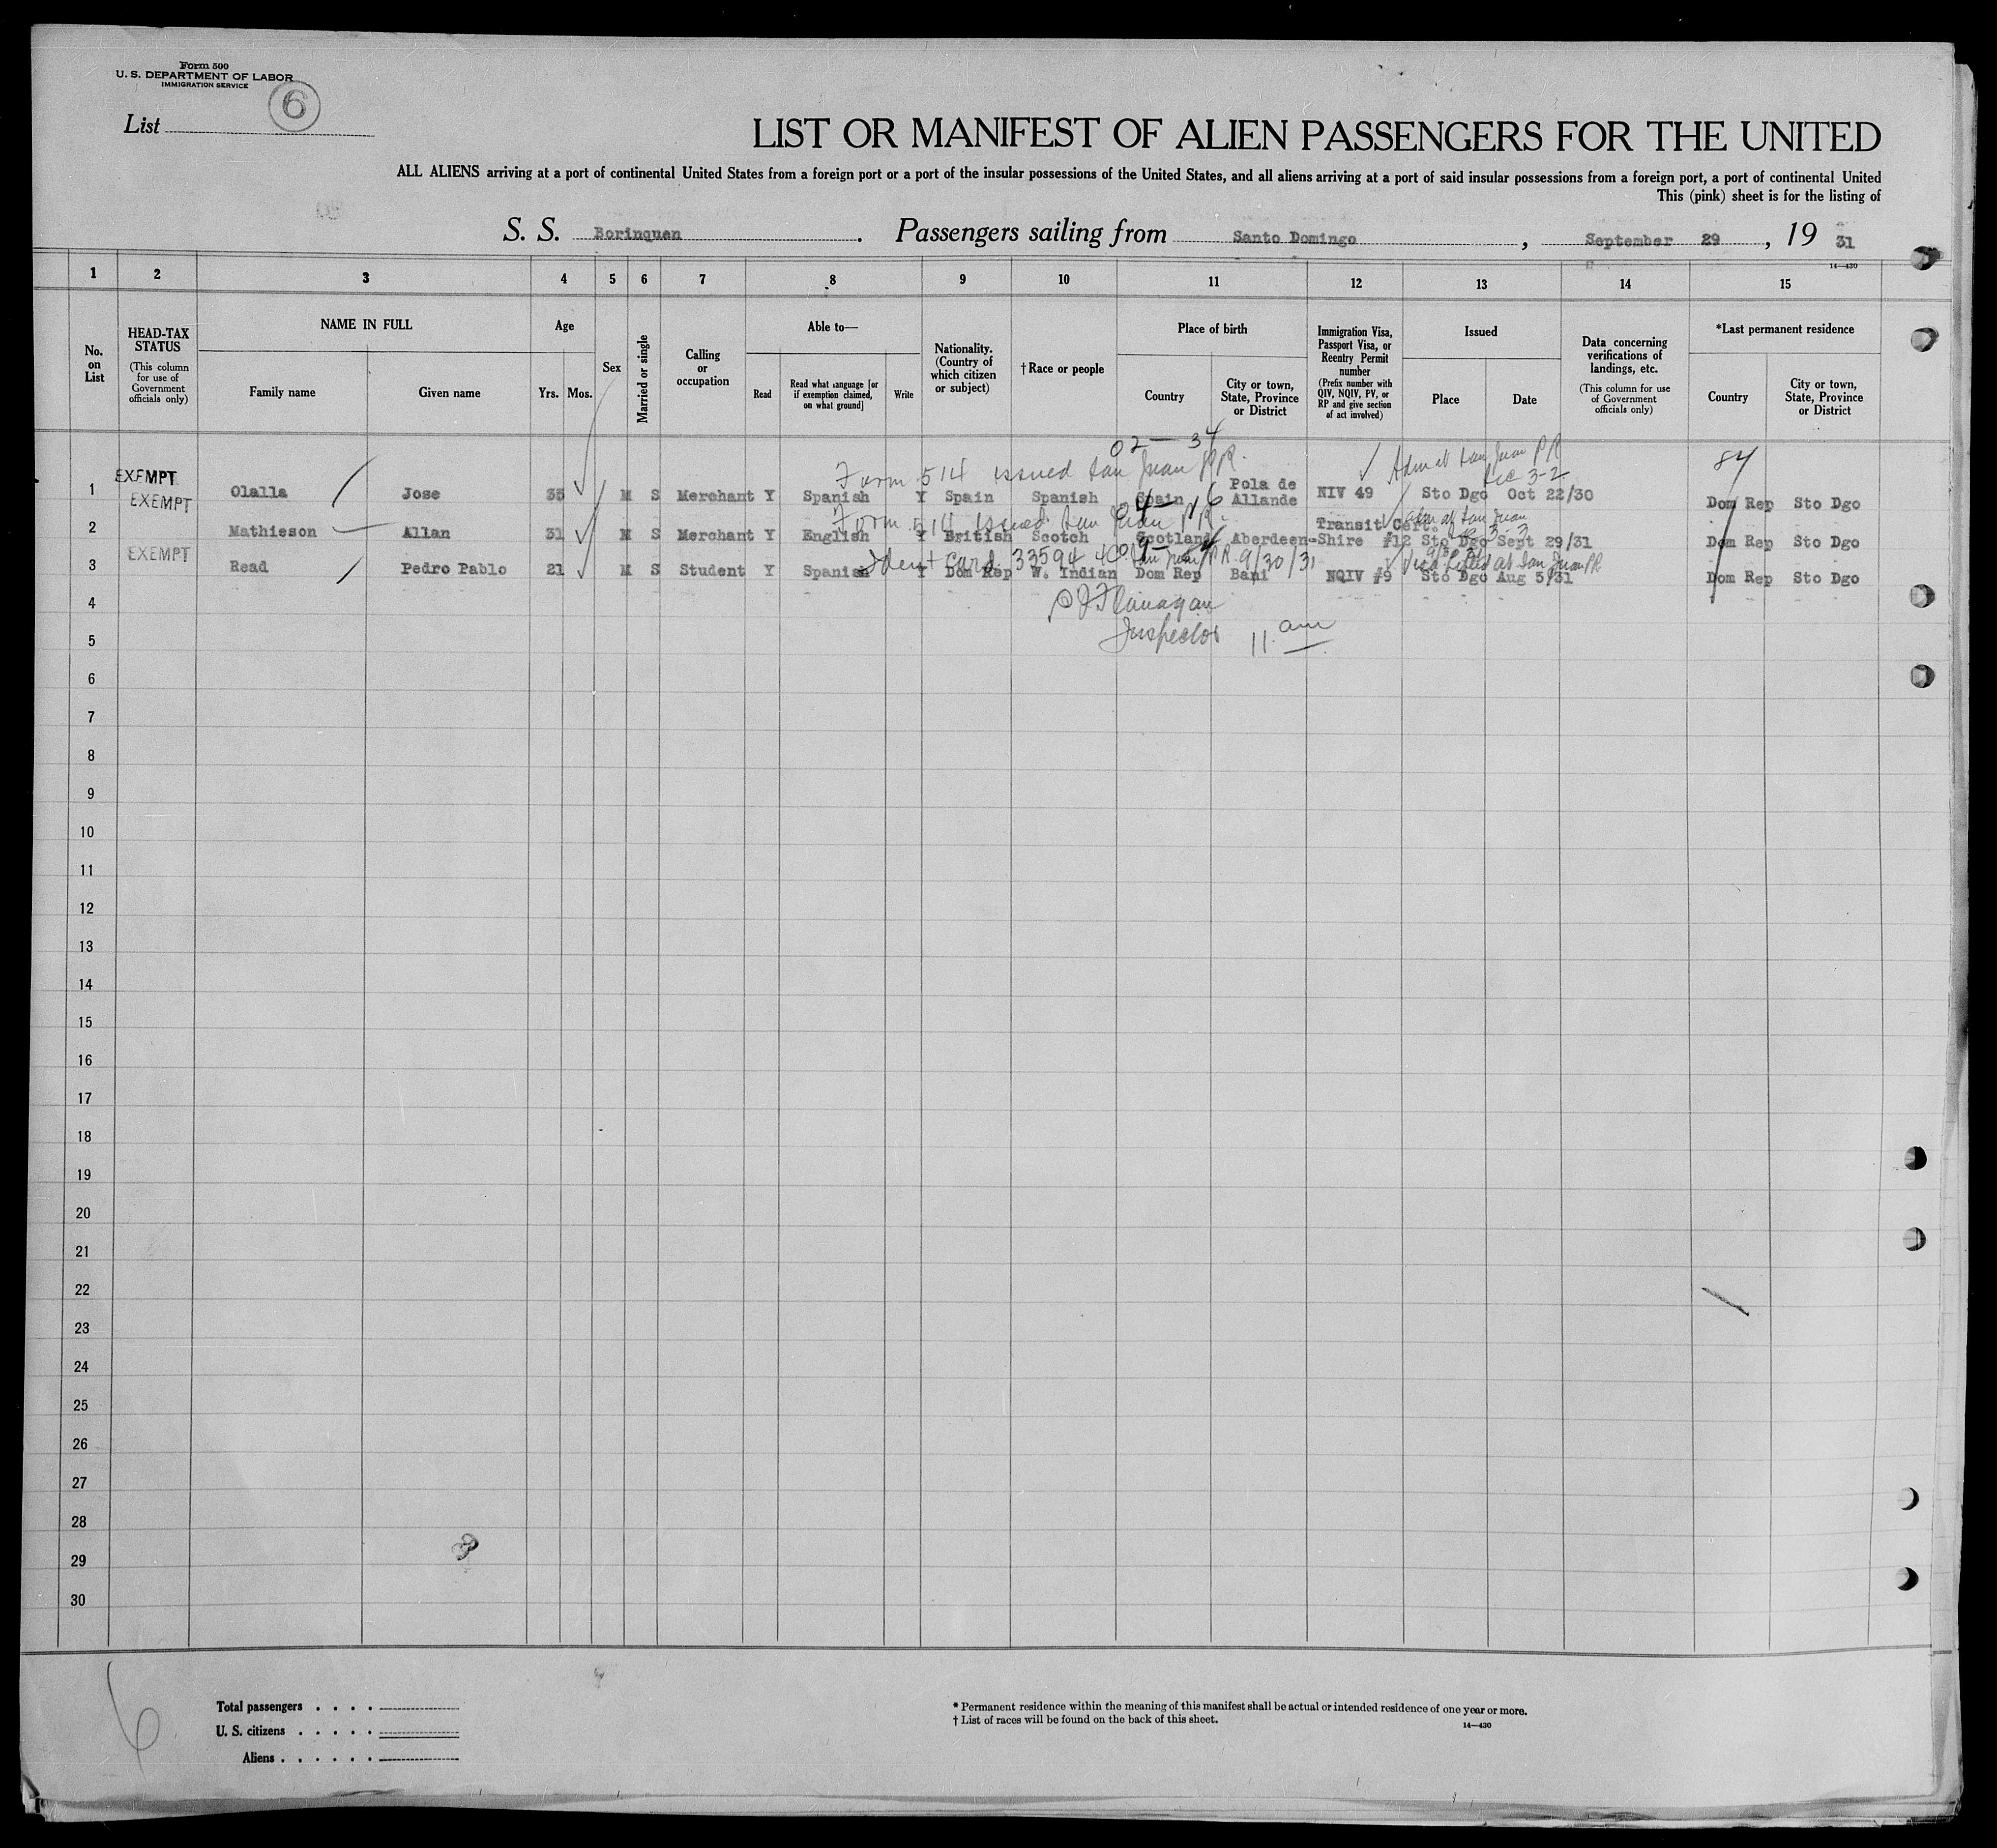 Form 500
U. S. DEPARTMENT OF LABOR
IMMIGRATION SERVICE
6
List
LIST OR MANIFEST OF ALIEN PASSENGERS FOR THE UNITED
ALL ALIENS arriving at a port of continental United States from a foreign port or a port of the insular possessions of the United States, and all aliens arriving at a port of said insular possessions from a foreign port, a port of continental United
This (pink) sheet is for the listing of
S. S. Borinquen. Passengers sailing from Santo Domingo, September 29, 19 31
14—430
1 2 3 4 5 6 7 8 9 10 11 12 13 14 15
No. on List
HEAD-TAX STATUS
(This column for use of Government officials only)
NAME IN FULL
Family name Given name
Age
Yrs. Mos.
Sex
Married or single
Calling or occupation
Able to—
Read
Read what language [or if exemption claimed, on what ground]
Write
Nationality. (Country of which citizen or subject)
† Race or people
Place of birth
Country
City or town, State, Province or District
Immigration Visa, Passport Visa, or Reentry Permit number
(Prefix number with QIV, NQIV, PV, or RP and give section of act involved)
Issued
Place Date
Data concerning verifications of landings, etc.
(This column for use of Government officials only)
*Last permanent residence
Country
City or town, State, Province or District
02 — 34
Form 514 issued San Juan P.R.
Adm at San Juan PR
Sec 3-2
84
EXEMPT
1 EXEMPT Olalla Jose 35 M S Merchant Y Spanish Y Spain Spanish Spain Pola de Allande NIV 49 Sto Dgo Oct 22/30 Dom Rep Sto Dgo
Form 514 Issued San Juan P.R.
adm at San Juan
2 Mathieson Allan 31 M S Merchant Y English Y British Scotch Scotland Aberdeen-Shire Transit Cert. #12 Sto Dgo Sept 29/31 Dom Rep Sto Dgo
Ident Card 33594 San Juan P.R. 9/30/31
Visa lifted at San Juan PR
3 EXEMPT Read Pedro Pablo 21 M S Student Y Spanish Y Dom Rep W. Indian Dom Rep Bani NQIV #9 Sto Dgo Aug 5/31 Dom Rep Sto Dgo
4
Flanagan
5
Inspector 11 am
6
7
8
9
10
11
12
13
14
15
16
17
18
19
20
21
22
23
24
25
26
27
28
29
30
6
Total passengers . . . .
U. S. citizens . . . . .
Aliens . . . . . .
* Permanent residence within the meaning of this manifest shall be actual or intended residence of one year or more.
† List of races will be found on the back of this sheet.
14—430